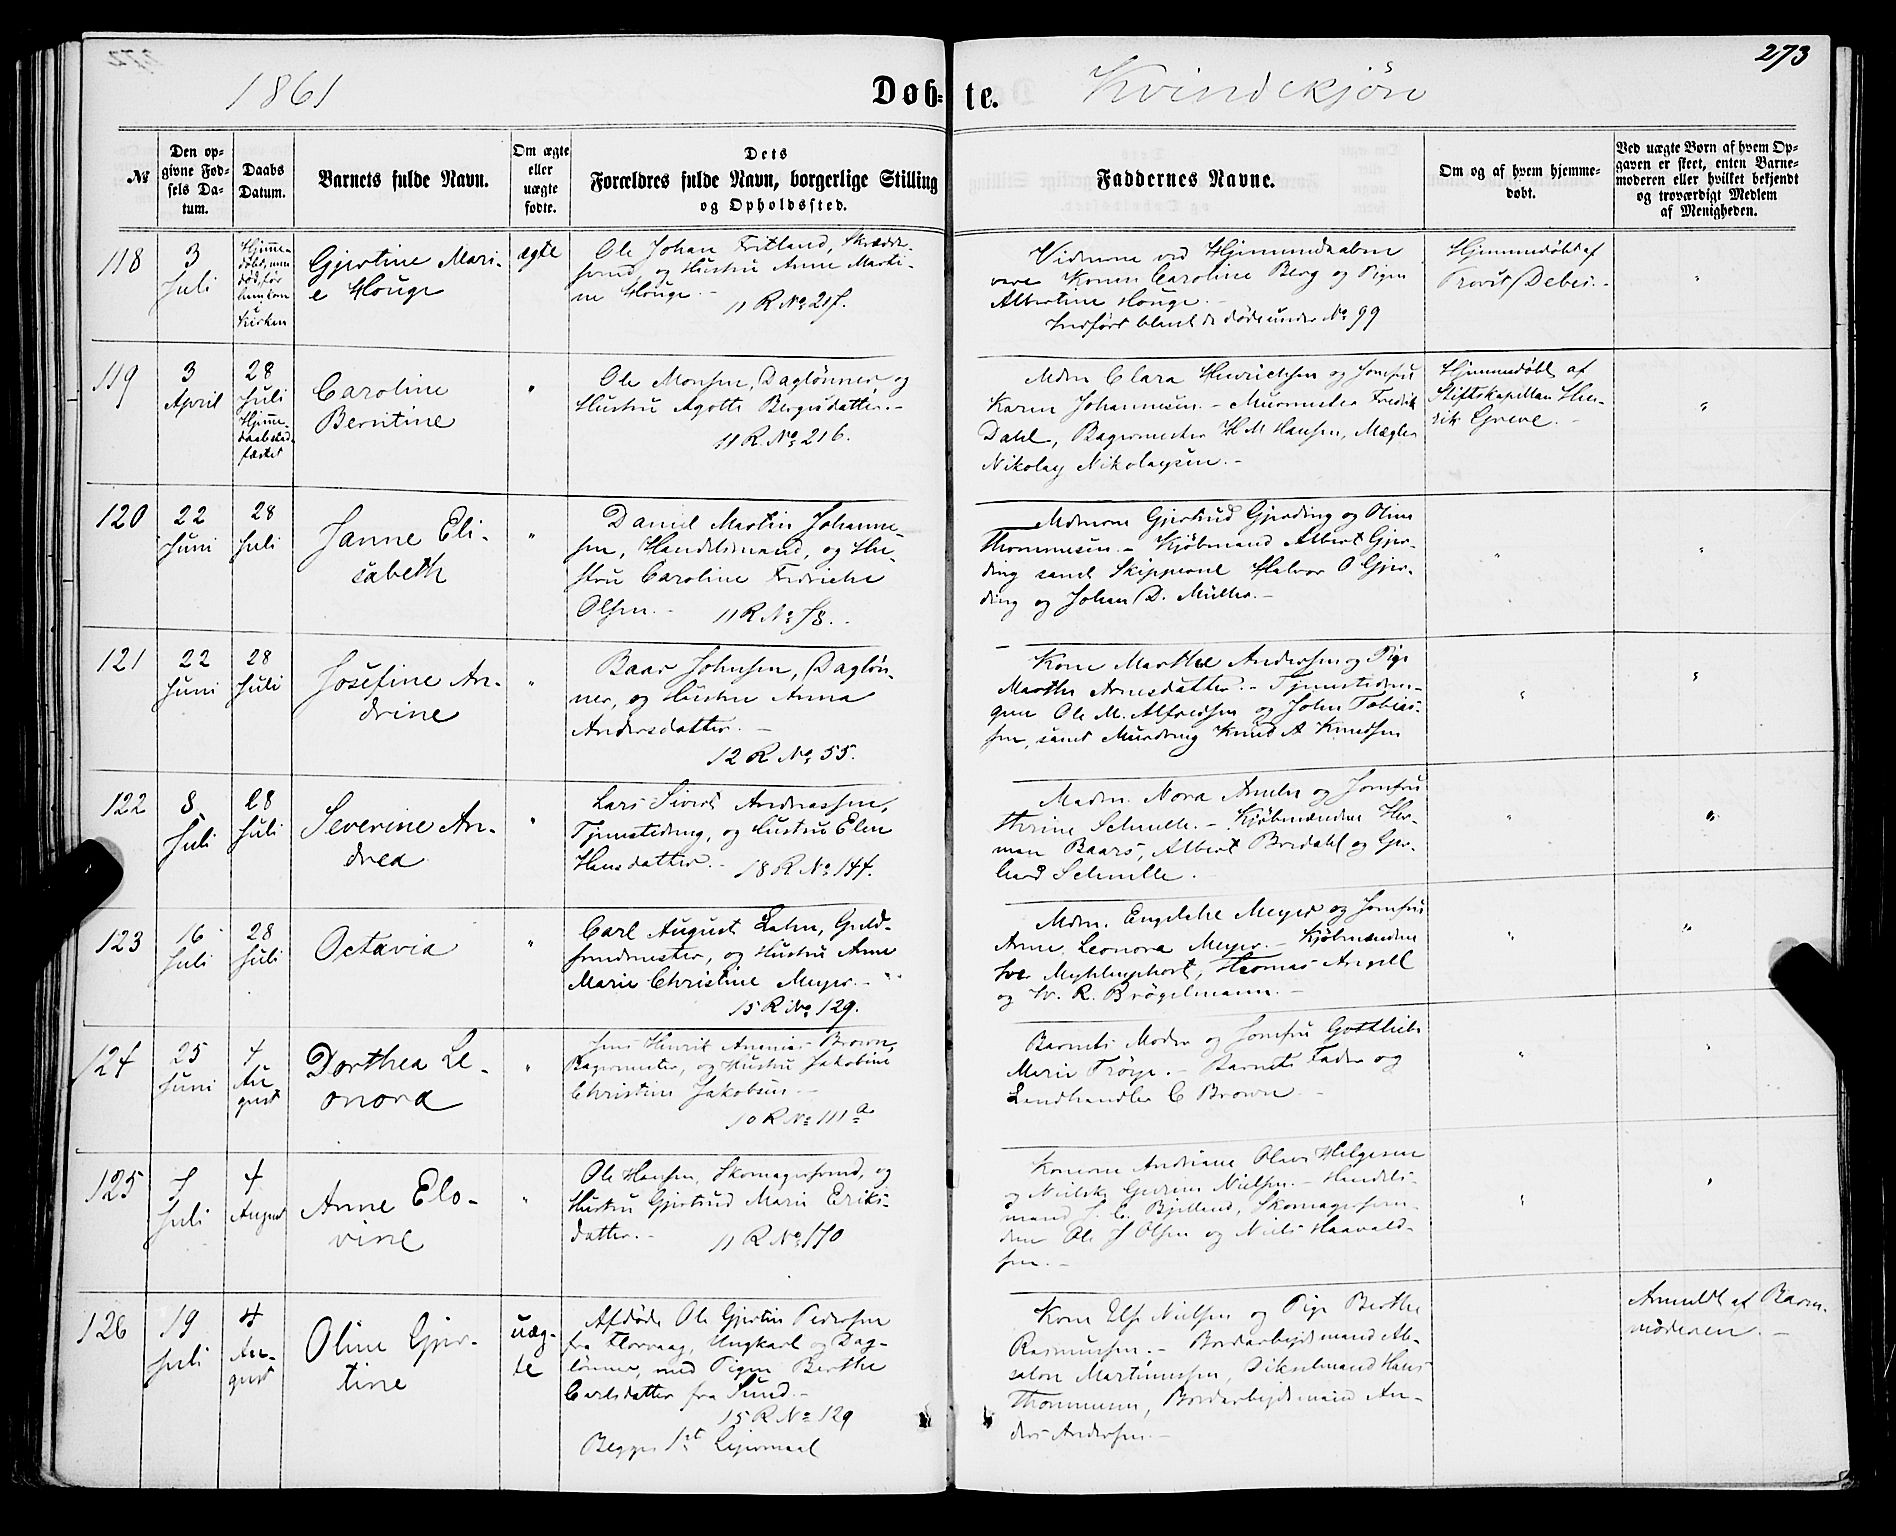 273
1861
Døbte.
Kvindekjøn
№
Den opgivne Fødsels Datum.
Daabs Datum.
Barnets fulde Navn.
Om ægte eller uægte fødte.
Dets Forældres fulde Navn, borgerlige Stilling og Opholdssted.
Faddernes Navne.
Om og af hvem hjemmedøbt.
Ved uægte Børn af hvem Opgaven er skeet, enten Barnemoderen eller hvilket bekjendt og troværdigt Medlem af Menigheden.
118
3
Juli
Hjemmedøbt, men
død før
kirken
Gjertine Mari-
e Houge
ægte
Ole Johan Fritland, Skrædder-
svend, og Hustru Anne Marti-
ne Houge.
11 R № 217.
Vidnerne ved Hjemmedaaben
vare Konen Caroline Berg og Pigen
Albertine Houge.
Indført blant de døde under № 99
Hjemmedøbt af
Provst Debes.
"
119
3
April
28
Juli
Hjemme-
daab stad-
fæstet
Caroline
Berntine
"
Ole Monsen, Daglønner, og
Hustru Agathe Bergesdatter.
11 R. № 216.
Mdm Clara Hinrichsen og Jomfru
Karen Johannesen. - Murmester Fredrik
Dahl, Bagermester H M Hansen, Mægler
Nikolay Nikolaysen.
Hjemmedøbt af
Stiftskapellan Hen-
rik Greve.
"
120
22
Juni
28
Juli
Janne Eli-
sabeth
"
Daniel Martin Johanne-
sen, Handelsmand, og Hu-
stru Caroline Fredrikke
Olsen.
11 R № 78.
Mdmerne Gjertrud Gjerding og Oline
Thommesen. - Kjøbmand Albert Gjer-
ding samt Skipperne Halvor O Gjer-
ding og Johan D. Müller.
"
"
121
22
Juni
28
Juli
Josefine An-
drine
"
Baar Johnsen, Dagløn-
ner, og Hustru Anna
Andersdatter.
12 R № 55.
Kone Marthe Andersen og Pige
Marthe Arnesdatter. - Tjenestedren-
gene Ole M. Alfredsen og John Tobias-
sen, samt Murdreng Knud A Knudsen
"
"
122
8
Juli
28
Juli
Severine An-
drea
"
Lars Sivert Andreassen,
Tjenestedreng, og Hustru Elen
Hansdatter.
18 R № 144.
Madm. Nora Ameln og Jomfru
Thrine Schnelle. - Kjøbmændene Her-
man Baars, Albert Bredahl og Ger-
hard Schnelle.
"
"
123
16
Juli
28
Juli
Octavia
"
Carl August Lahn, Guld-
smedmester, og Hustru Anne
Marie Christine Meyer.
15 R № 129.
Mdm. Engelche Meyer og Jomfru
Anne Leonora Meyer. - Kjøbmændene
Iver Myhlenphort, Thomas Angell
og W. R. Brögelmann.
"
"
124
25
Juni
4
Au-
gust
Dorthea Le-
onora
"
Jens Henrik Ananias Brown,
Bagermester, og Hustru Jakobine
Christine Jakobsen.
10 R № 111 a
Barnets Moder og Jomfru Gotthilde
Marie Trøye. - Barnets Fader og
Landhandler C Brown.
"
"
125
7
Juli
4
August
Anne Elo-
vine
"
Ole Hansen, Skomagersvend, og
Hustru Gjertrud Marie Eriks-
datter.
11 R № 170
Konerne Andriane Olava Helgesen
og Nielske Gurine Nielsen. - Handels-
mand S. C. Bjelland, Skomagersven-
dene Ole J Olsen og Niels Haavald-
sen.
"
"
126
19
Juli
4
Au-
gust
Oline Gjer-
tine
uæg-
te
Afdøde Ole Gjertin Pedersen
fra Florvaag, Ungkarl og Dag-
lønner, med Pigen Berthe
Carlsdatter fra Sund.
15 R № 129
Begges 1st Leiermaal
Kone Else Nielsen og Pige Berthe
Rasmussen. - Bordarbejdsmand Ab-
salon Martinussen, Dikselmand Hans
Thommesen, Bordarbejdsmand An-
ders Andersen.
Anmeldt af Barne-
moderen.